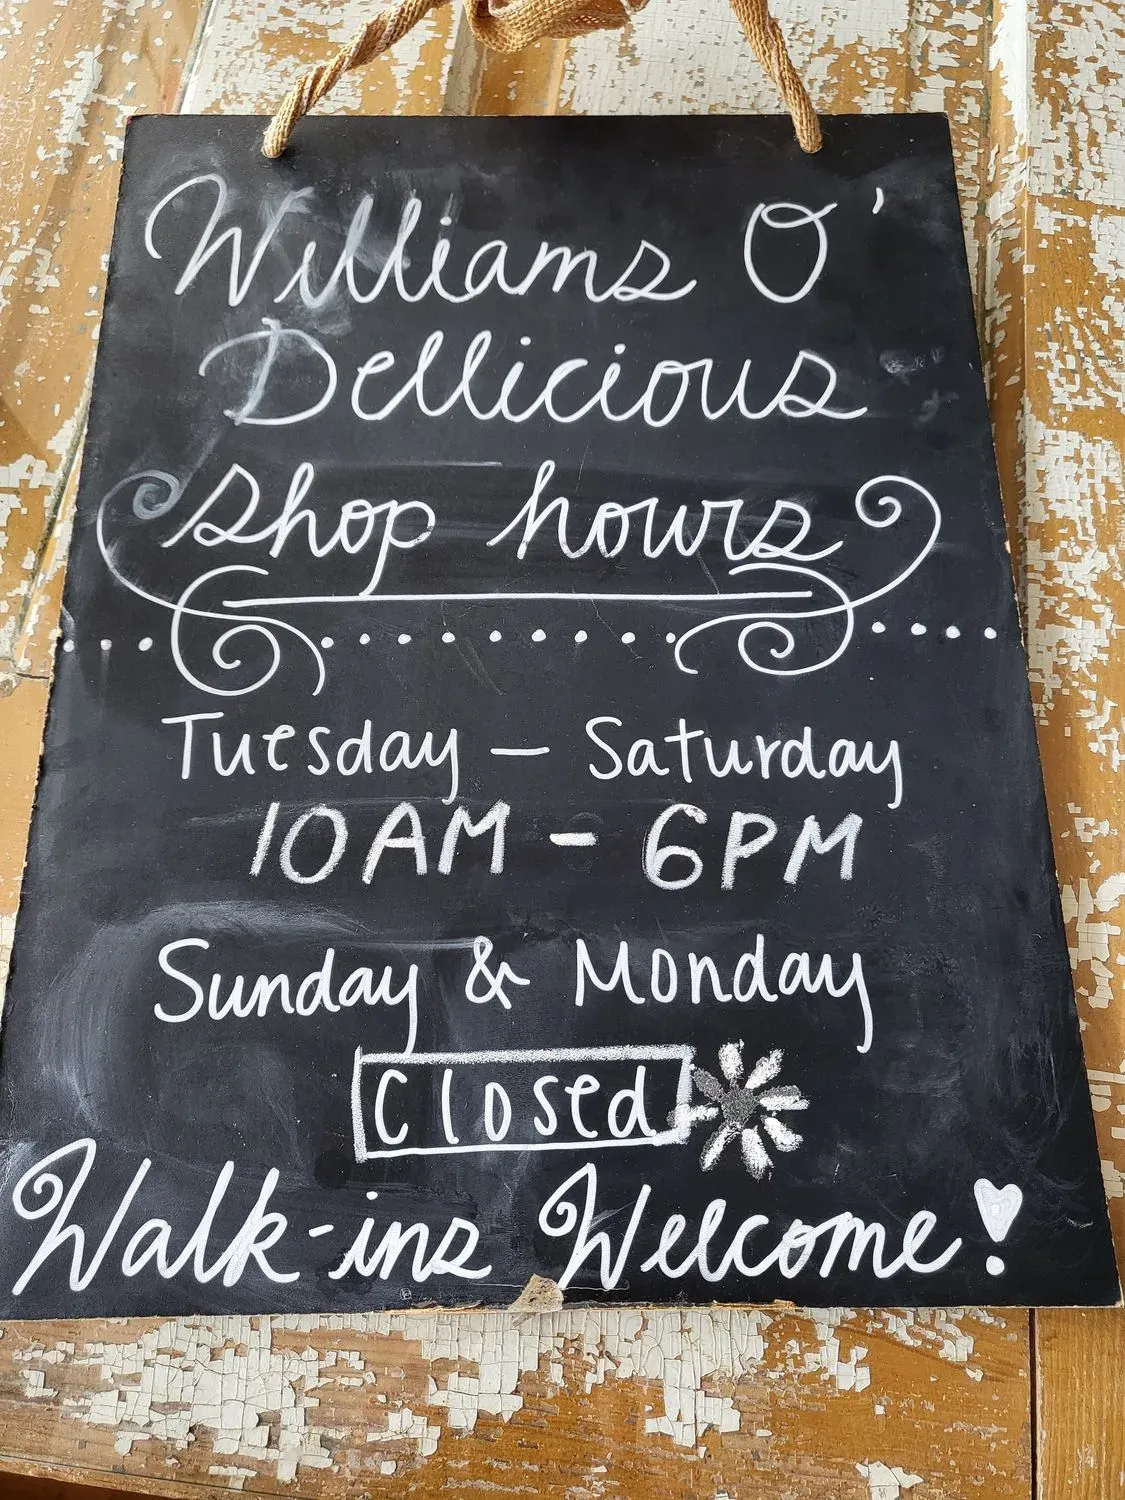 Williams O'
Dellicious
shop hours
Tuesday – Saturday
10AM - 6PM
Sunday & Monday
Closed
Walk-ins Welcome!